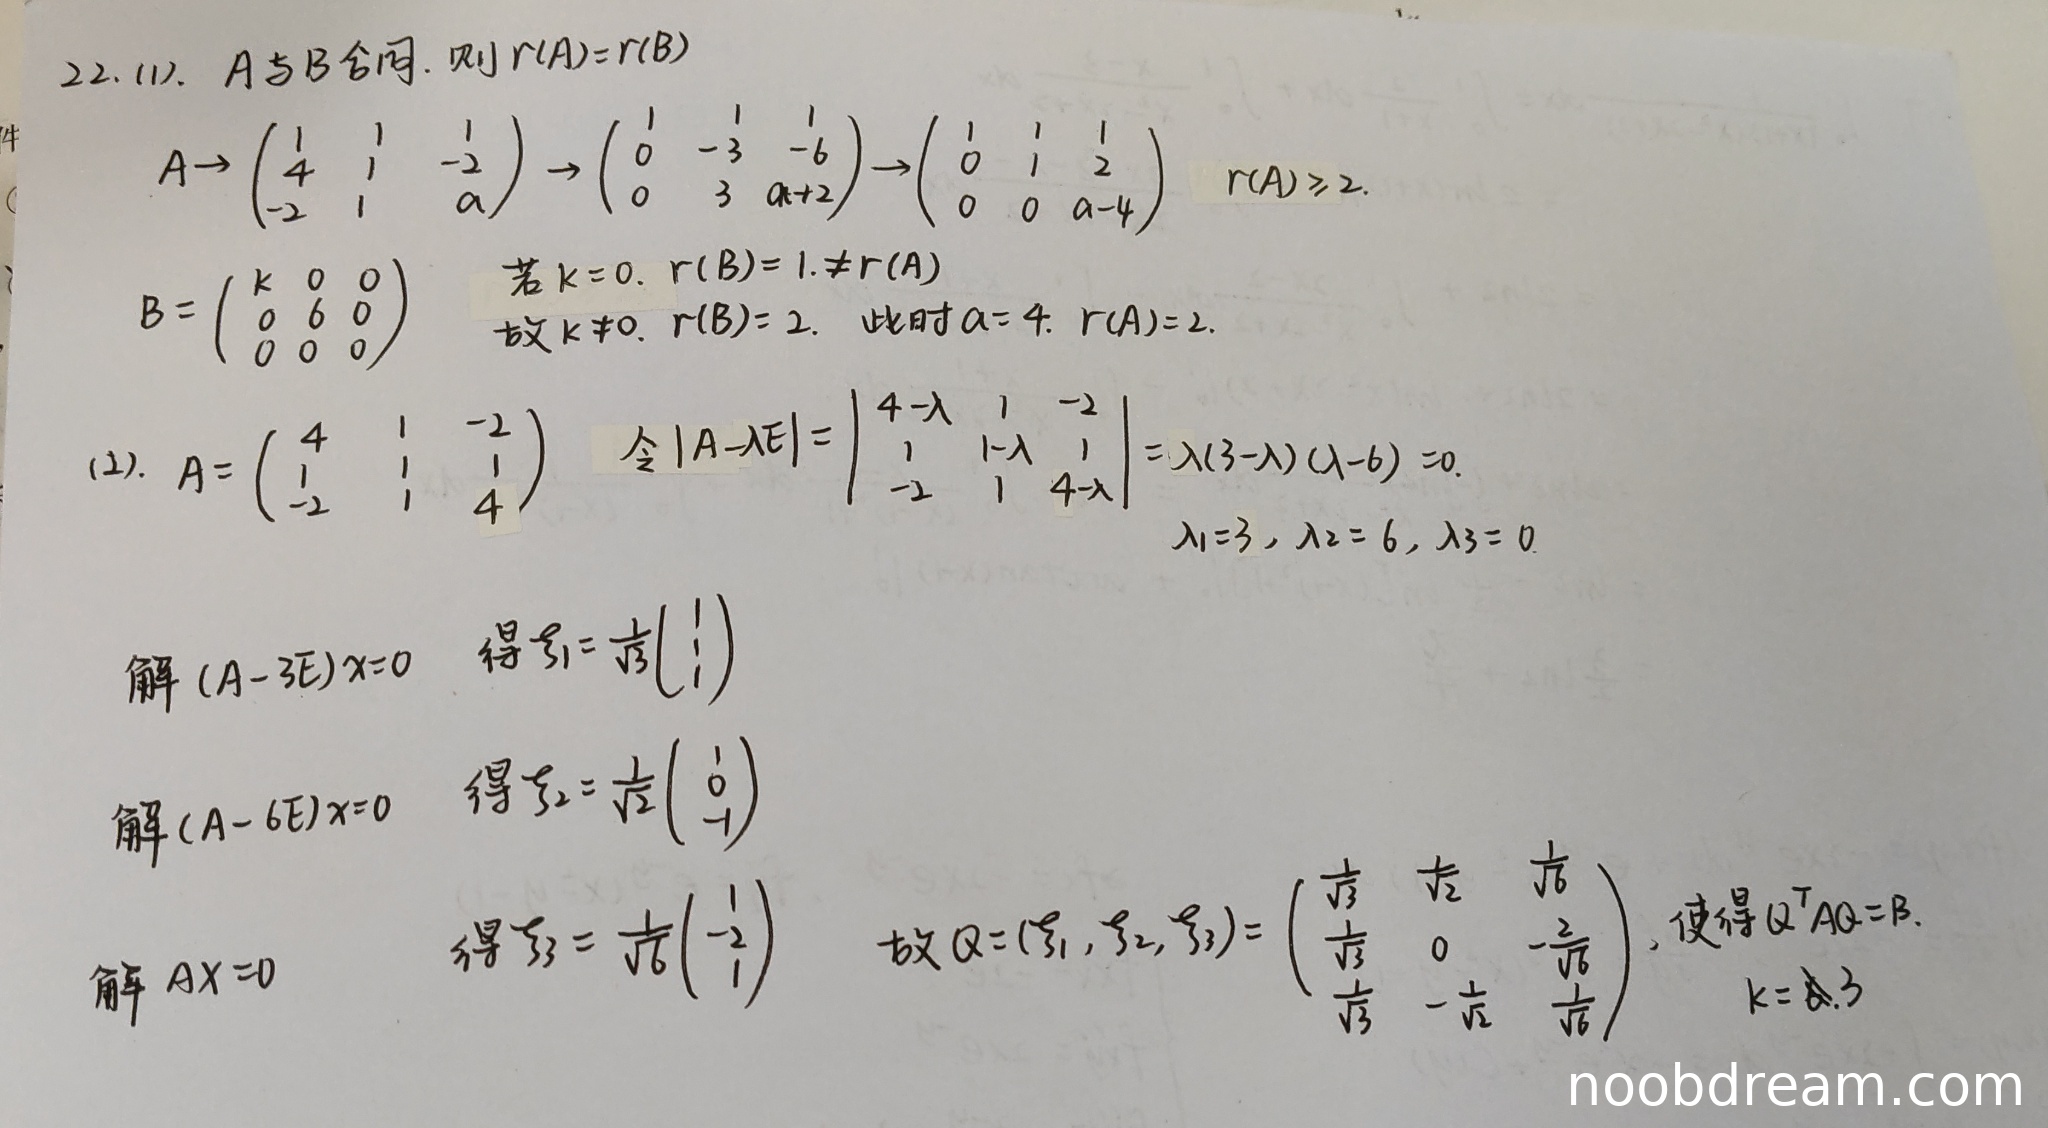 22.(1). A与B合同. 则 r(A)=r(B)
A→ (1 1 1; 4 1 -2; -2 1 a) → (1 1 1; 0 -3 -6; 0 3 a+2) → (1 1 1; 0 1 2; 0 0 a-4) r(A)≥2.
B= (k 0 0; 0 6 0; 0 0 0) 若k=0. r(B)=1.≠r(A)
故k≠0. r(B)=2. 此时a=4. r(A)=2.
(2). A= (4 1 -2; 1 1 1; -2 1 4) 令|A-λE|= |4-λ 1 -2; 1 1-λ 1; -2 1 4-λ| =λ(3-λ)(λ-6)=0.
λ1=3, λ2=6, λ3=0.
解 (A-3E)x=0 得ξ1= 1/√3 (1; 1; 1)
解 (A-6E)x=0 得ξ2= 1/√2 (1; 0; -1)
解 AX=0 得ξ3= 1/√6 (1; -2; 1) 故Q=(ξ1, ξ2, ξ3)= (1/√3 1/√2 1/√6; 1/√3 0 -2/√6; 1/√3 -1/√2 1/√6), 使得QᵀAQ=B.
k=3
noobdream.com